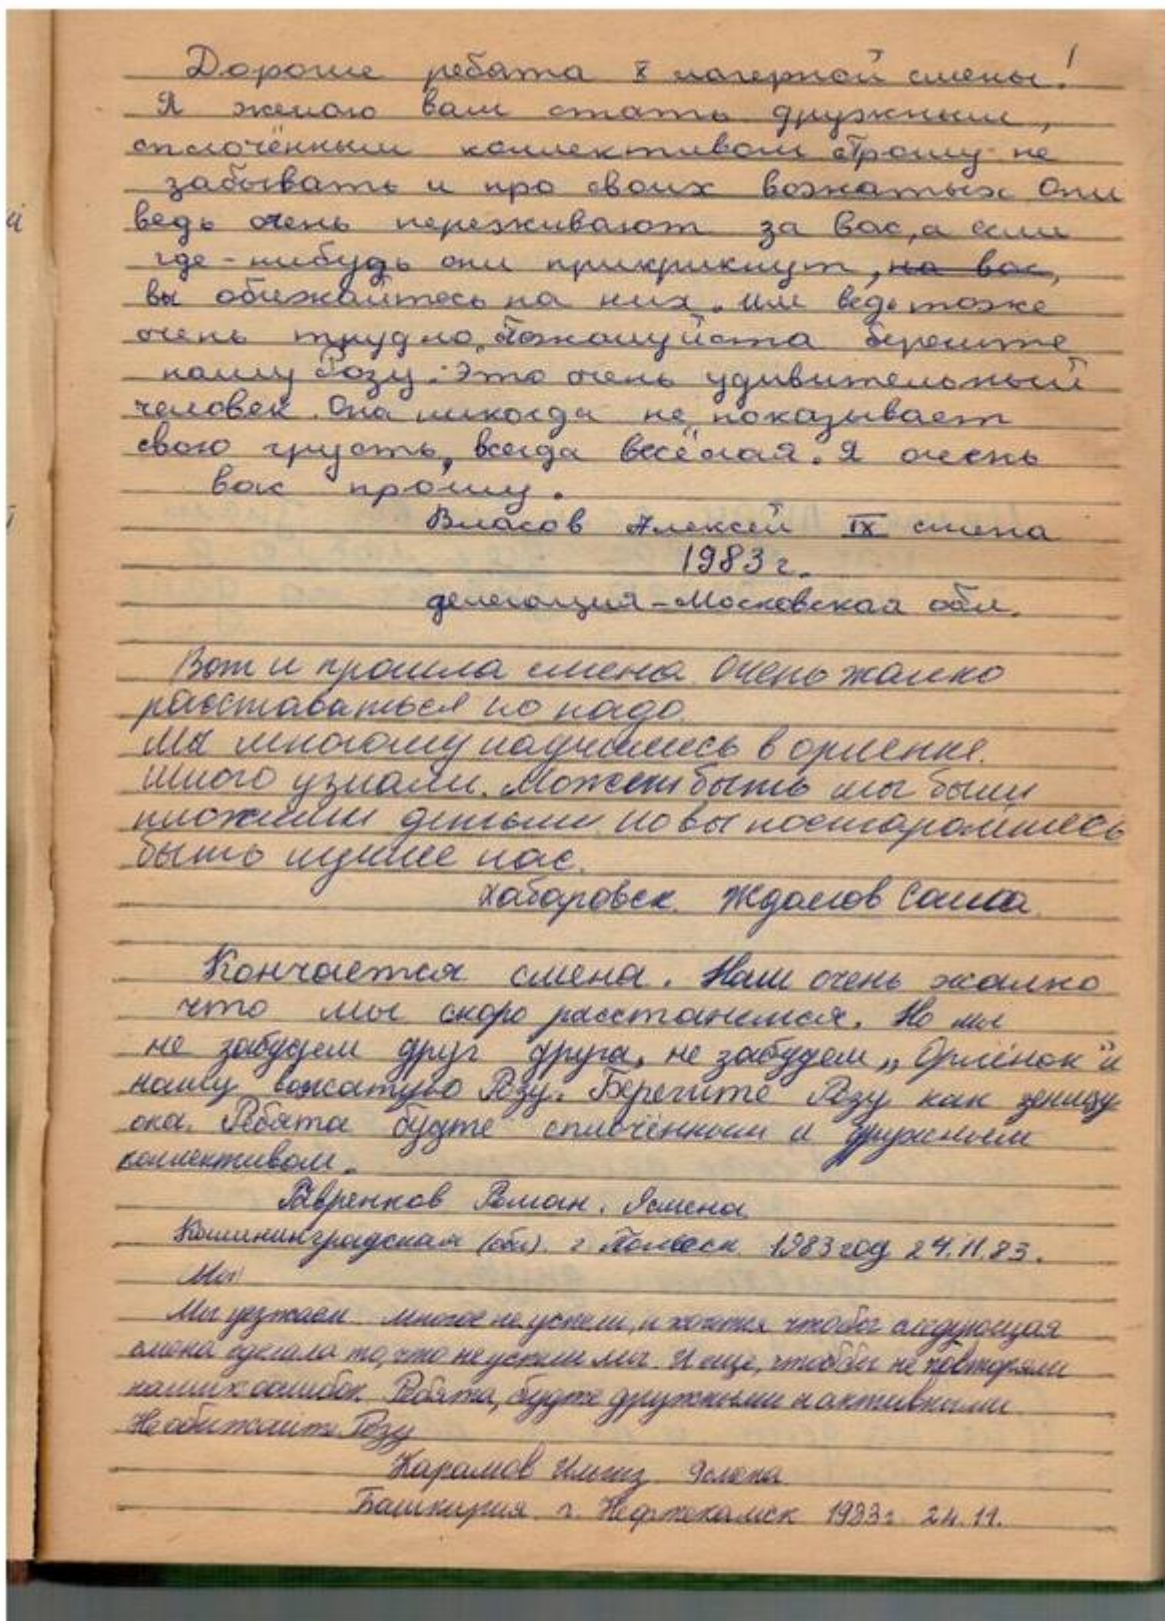 1
Дорогие ребята X лагерной смены!
Я желаю вам стать дружным,
сплочённым коллективом. Прошу не
забывать и про своих вожатых Они
ведь очень переживают за вас, а если
где-нибудь они прикрикнут, на вас,
вы обижайтесь на них. Им ведь тоже
очень трудно. Пожалуйста берегите
нашу Розу. Это очень удивительный
человек. Она никогда не показывает
свою грусть, всегда весёлая. Я очень
вас прошу.
Власов Алексей IX смена
1983 г.
делегация - Московская обл.
Вот и прошла смена Очень жалко
расставаться но надо.
Мы многому научились в орленке.
Много узнали. Может быть мы были
плохими детьми но вы постарайтесь
быть лучше нас.
Хабаровск. Жданов Саша
Кончается смена. Нам очень жалко
что мы скоро расстанемся. Но мы
не забудем друг друга, не забудем „Орлёнок" и
нашу вожатую Розу. Берегите Розу как зеницу
ока. Ребята будте сплочённым и дружным
коллективом.
Роман. 9 смена
Калининградская (обл). г. Полесск 1983 год 24.11.83.
Мы
Мы уезжаем многое не успели, и хочется чтобы следующая
смена сделала то, что не успели мы. И еще, чтобы не повторяли
наших ошибок. Ребята, будте дружными и активными
Не обижайте Розу
Карамов Ильгиз 9 смена
Башкирия г. Нефтекамск 1983 г. 24.11.